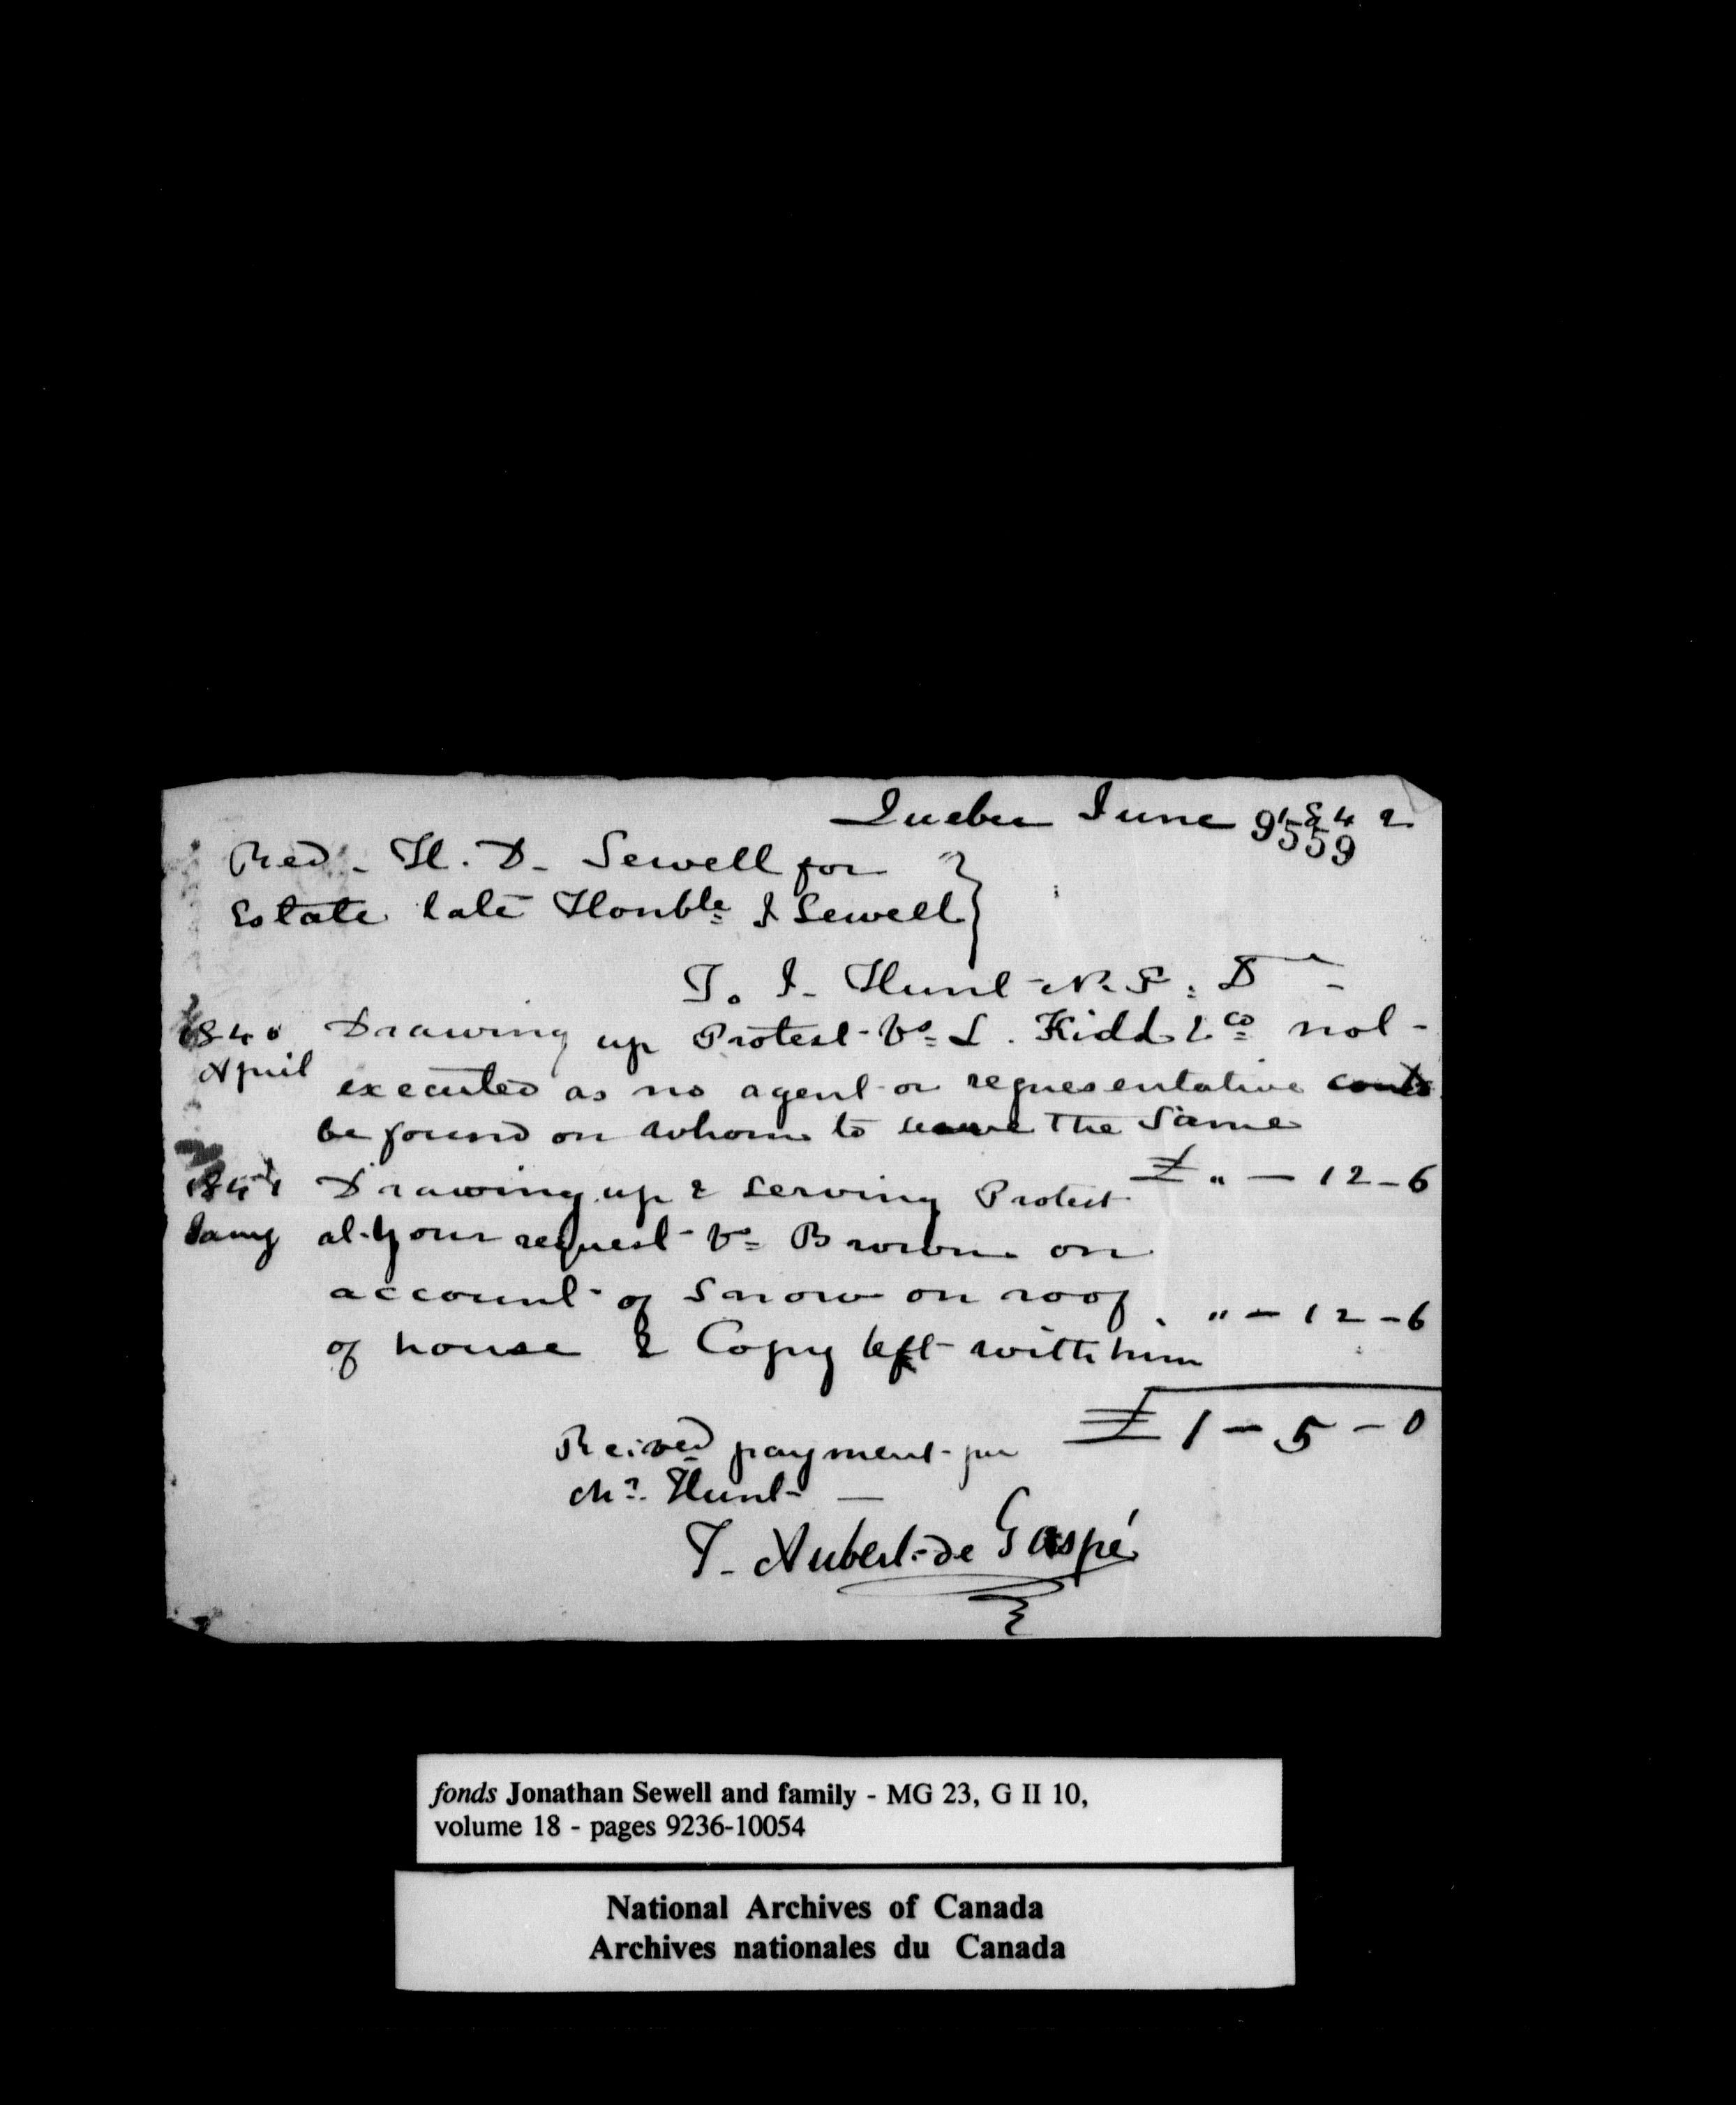 Quebec June 1842
9559
Revd. H. D. Sewell for
Estate late Honble J Sewell
To J. Hunt N. P. Dr
1840 Drawing up Protest Vs L. Kidd & Co not
April executed as no agent or representative could
be found on whom to leave the same
£ " — 12 – 6
1841 Drawing up & Serving Protest
Jany at your request Vs Brown on
account of Snow on roof . " – 12 – 6
of house & Copy left with him
£ 1 – 5 – 0
Reived payment for
Mr. Hunt —
T. Aubert de Gaspé
fonds Jonathan Sewell and family - MG 23, G II 10,
volume 18 - pages 9236-10054
National Archives of Canada
Archives nationales du Canada